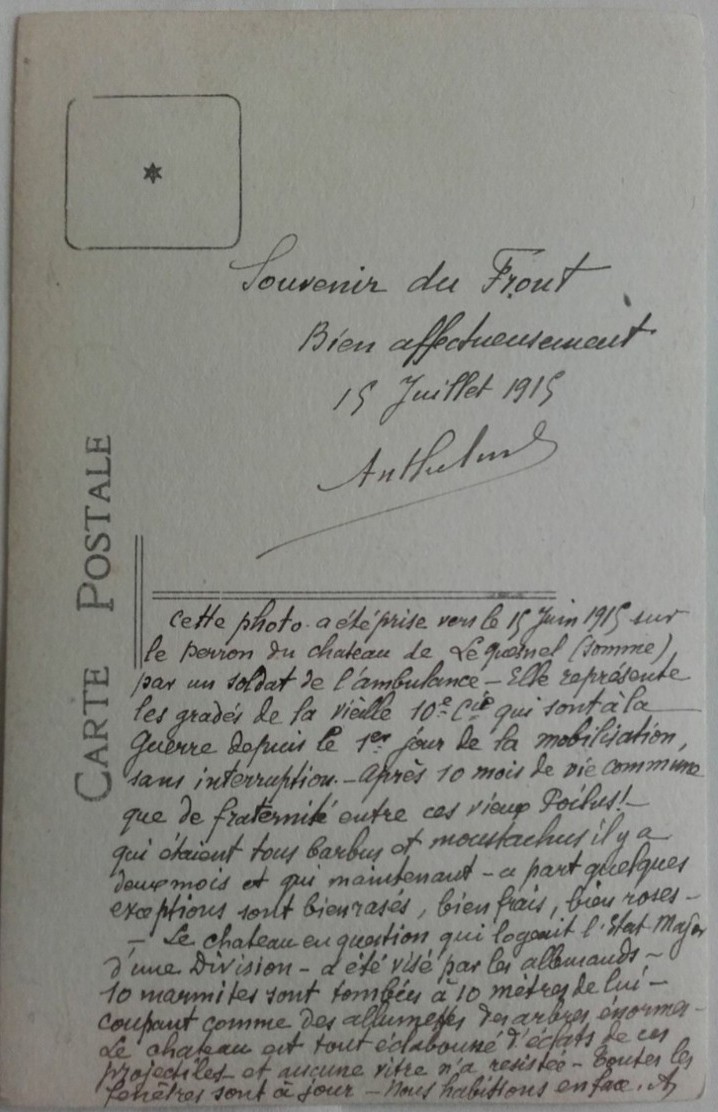 Souvenir du Front
Bien affectueusement
15 Juillet 1915
CARTE POSTALE
Cette photo a été prise vers le 15 Juin 1915 sur
le perron du chateau de Le Quesnel (Somme),
par un soldat de l'ambulance - Elle représente
les gradés de la vieille 10e Cie qui sont à la
Guerre depuis le 1er jour de la mobilisation,
sans interruption. - Après 10 mois de vie commune
que de fraternité entre ces vieux Poilus! -
qui étaient tous barbus et moustachus il y a
deux mois et qui maintenant - a part quelques
exceptions sont bien rasés, bien frais, bien roses -
- Le chateau en question qui logeait l'Etat Major
d'une Division - a été visé par les allemands -
10 marmites sont tombées à 10 mètres de lui -
coupant comme des allumettes des arbres énormes -
Le chateau est tout éclaboussé d'éclats de ces
projectiles et aucune vitre n'a resistée - Toutes les
fenêtres sont à jour - Nous habitions en face. A